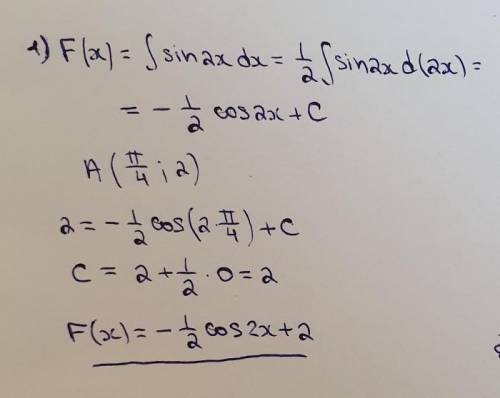 1) F(x) = ∫ sin2x dx = 1/2 ∫ sin2x d(2x) =
= - 1/2 cos2x + C
A (π/4 ; 2)
2 = - 1/2 cos(2·π/4) + C
C = 2 + 1/2 · 0 = 2
F(x) = - 1/2 cos2x + 2